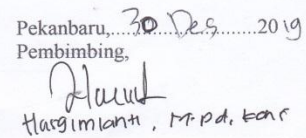 Pekanbaru,....30 Des.......2019
Pembimbing,
Hargimianti, M.Pd, Kons